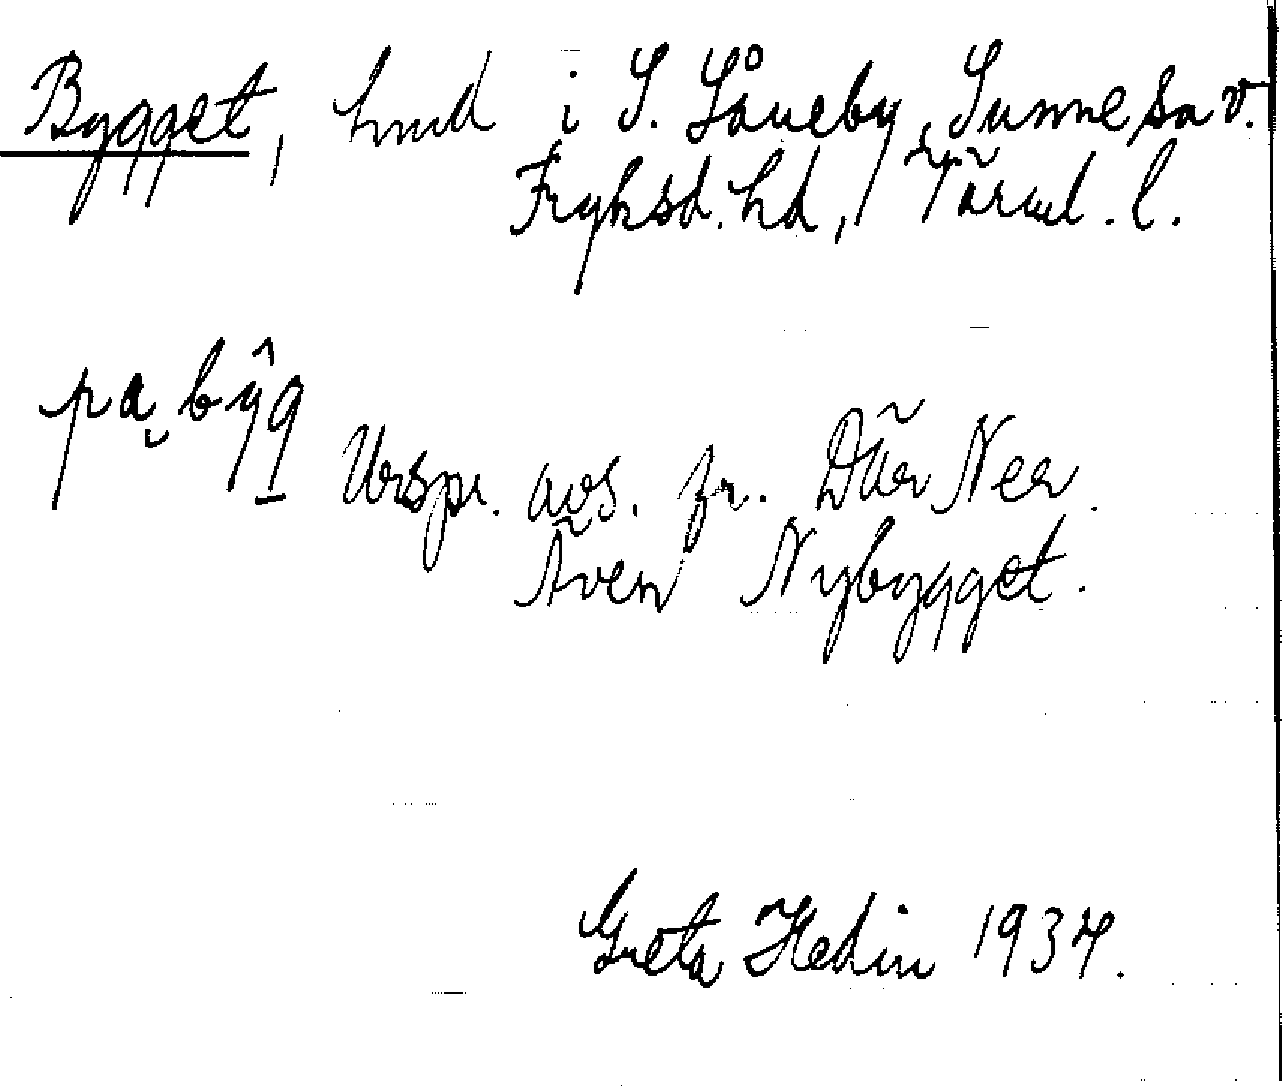 Bygget, hmd i S. Såneby, Sunne sn v.
Fryksd. hd, Värml. l.
pa̬ bŷg
Urspr. avs. fr. Där Ner.
Även Nybygget.
Greta Hedin 1934.